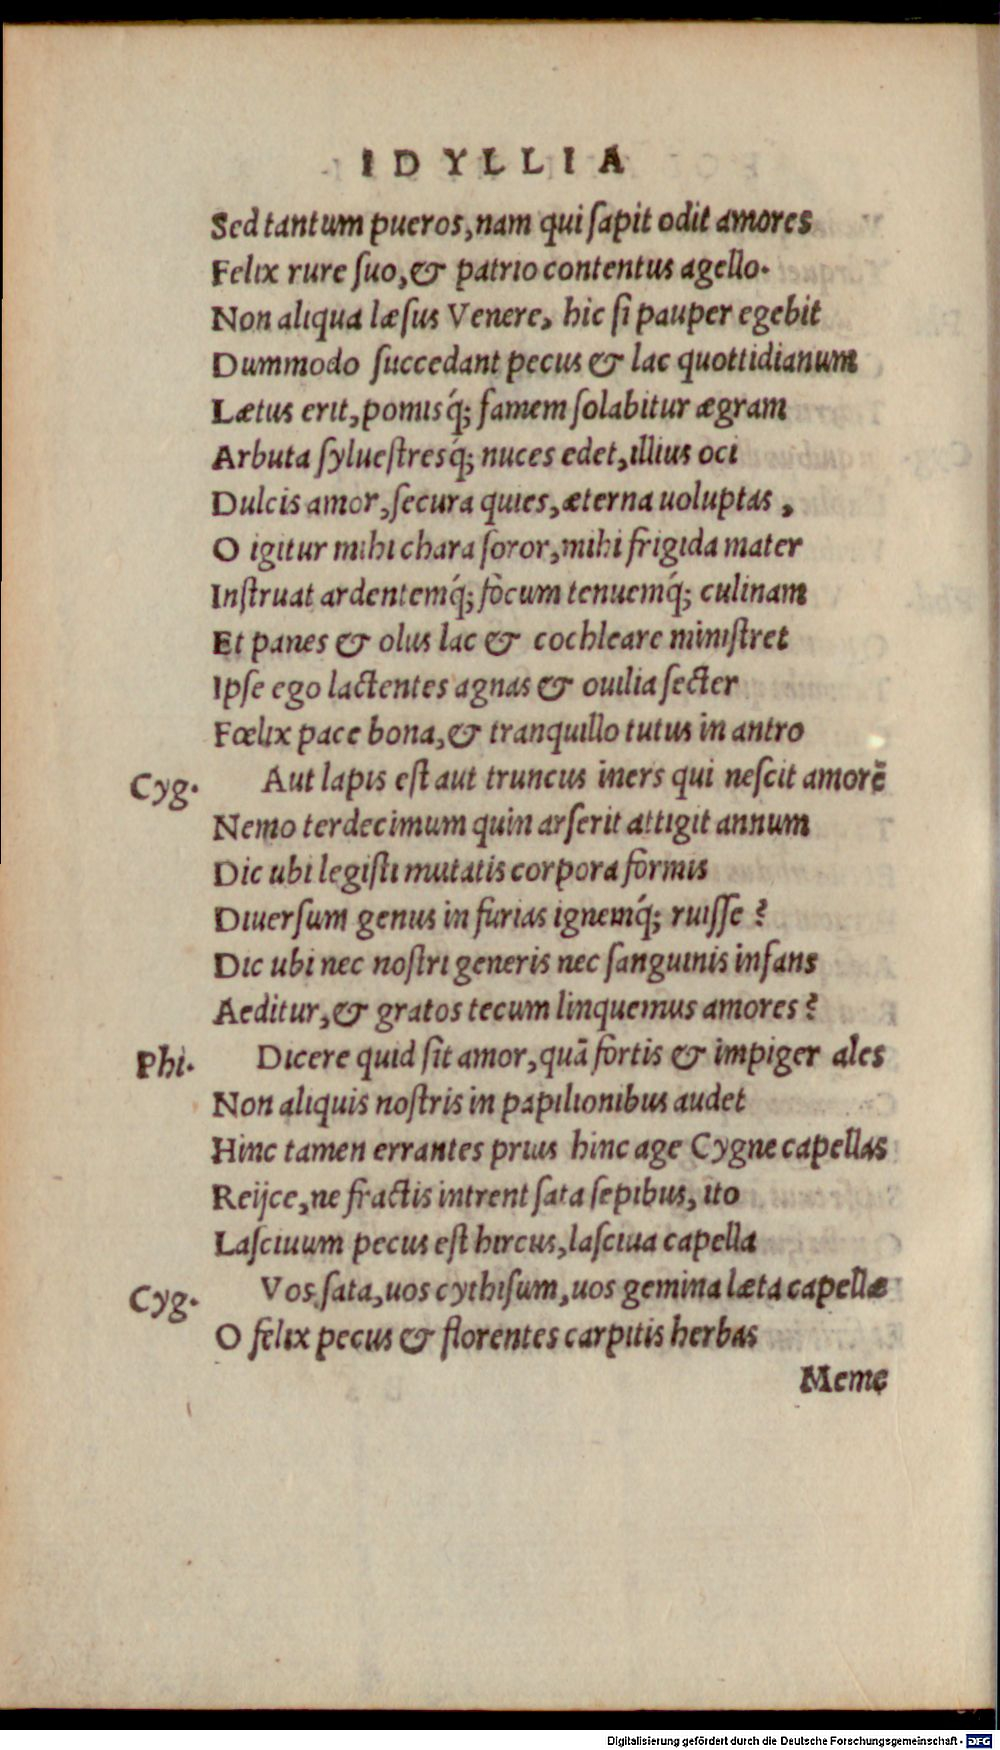 IDYLLIA
Sed tantum pueros, nam qui ſapit odit amores
Felix rure ſuo, & patrio contentus agello.
Non aliqua læſus Venere, hic ſi pauper egebit
Dummodo ſuccedant pecus & lac quottidianum
Lætus erit, pomisq́; famem ſolabitur ægram
Arbuta ſylueſtresq́; nuces edet, illius oci
Dulcis amor, ſecura quies, æterna uoluptas,
O igitur mihi chara ſoror, mihi frigida mater
Inſtruat ardentemq́; focum tenuemq́; culinam
Et panes & olus lac & cochleare miniſtret
Ipſe ego lactentes agnas & ouilia ſecter
Fœlix pace bona, & tranquillo tutus in antro
Cyg. Aut lapis eſt aut truncus iners qui neſcit amorē
Nemo terdecimum quin arſerit attigit annum
Dic ubi legiſti mutatis corpora formis
Diuerſum genus in furias ignemq́; ruiſſe?
Dic ubi nec noſtri generis nec ſanguinis inſans
Aeditur, & gratos tecum linquemus amores?
Phi. Dicere quid ſit amor, quā fortis & impiger ales
Non aliquis noſtris in papilionibus audet
Hinc tamen errantes prius hinc age Cygne capellas
Reijce, ne fractis intrent ſata ſepibus, ito
Laſciuum pecus eſt hircus, laſciua capella
Cyg. Vos ſata, uos cythiſum, uos gemina læta capellæ
O felix pecus & florentes carpitis herbas
Meme
Digitalisierung gefördert durch die Deutsche Forschungsgemeinschaft - DFG